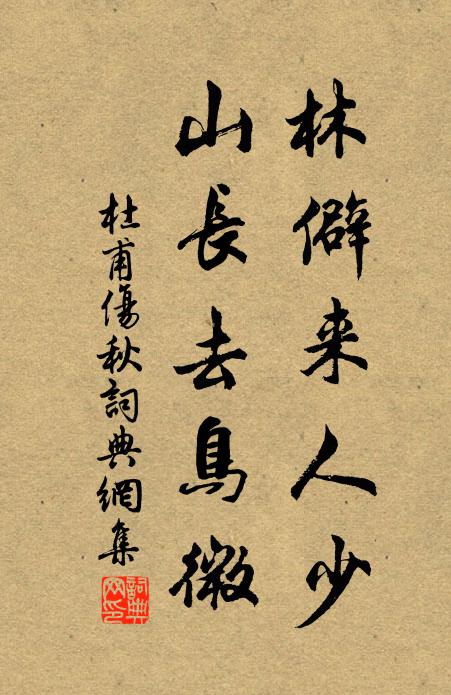 林僻来人少
山長去鳥微
杜甫傷秋詞典網集
詞典网印